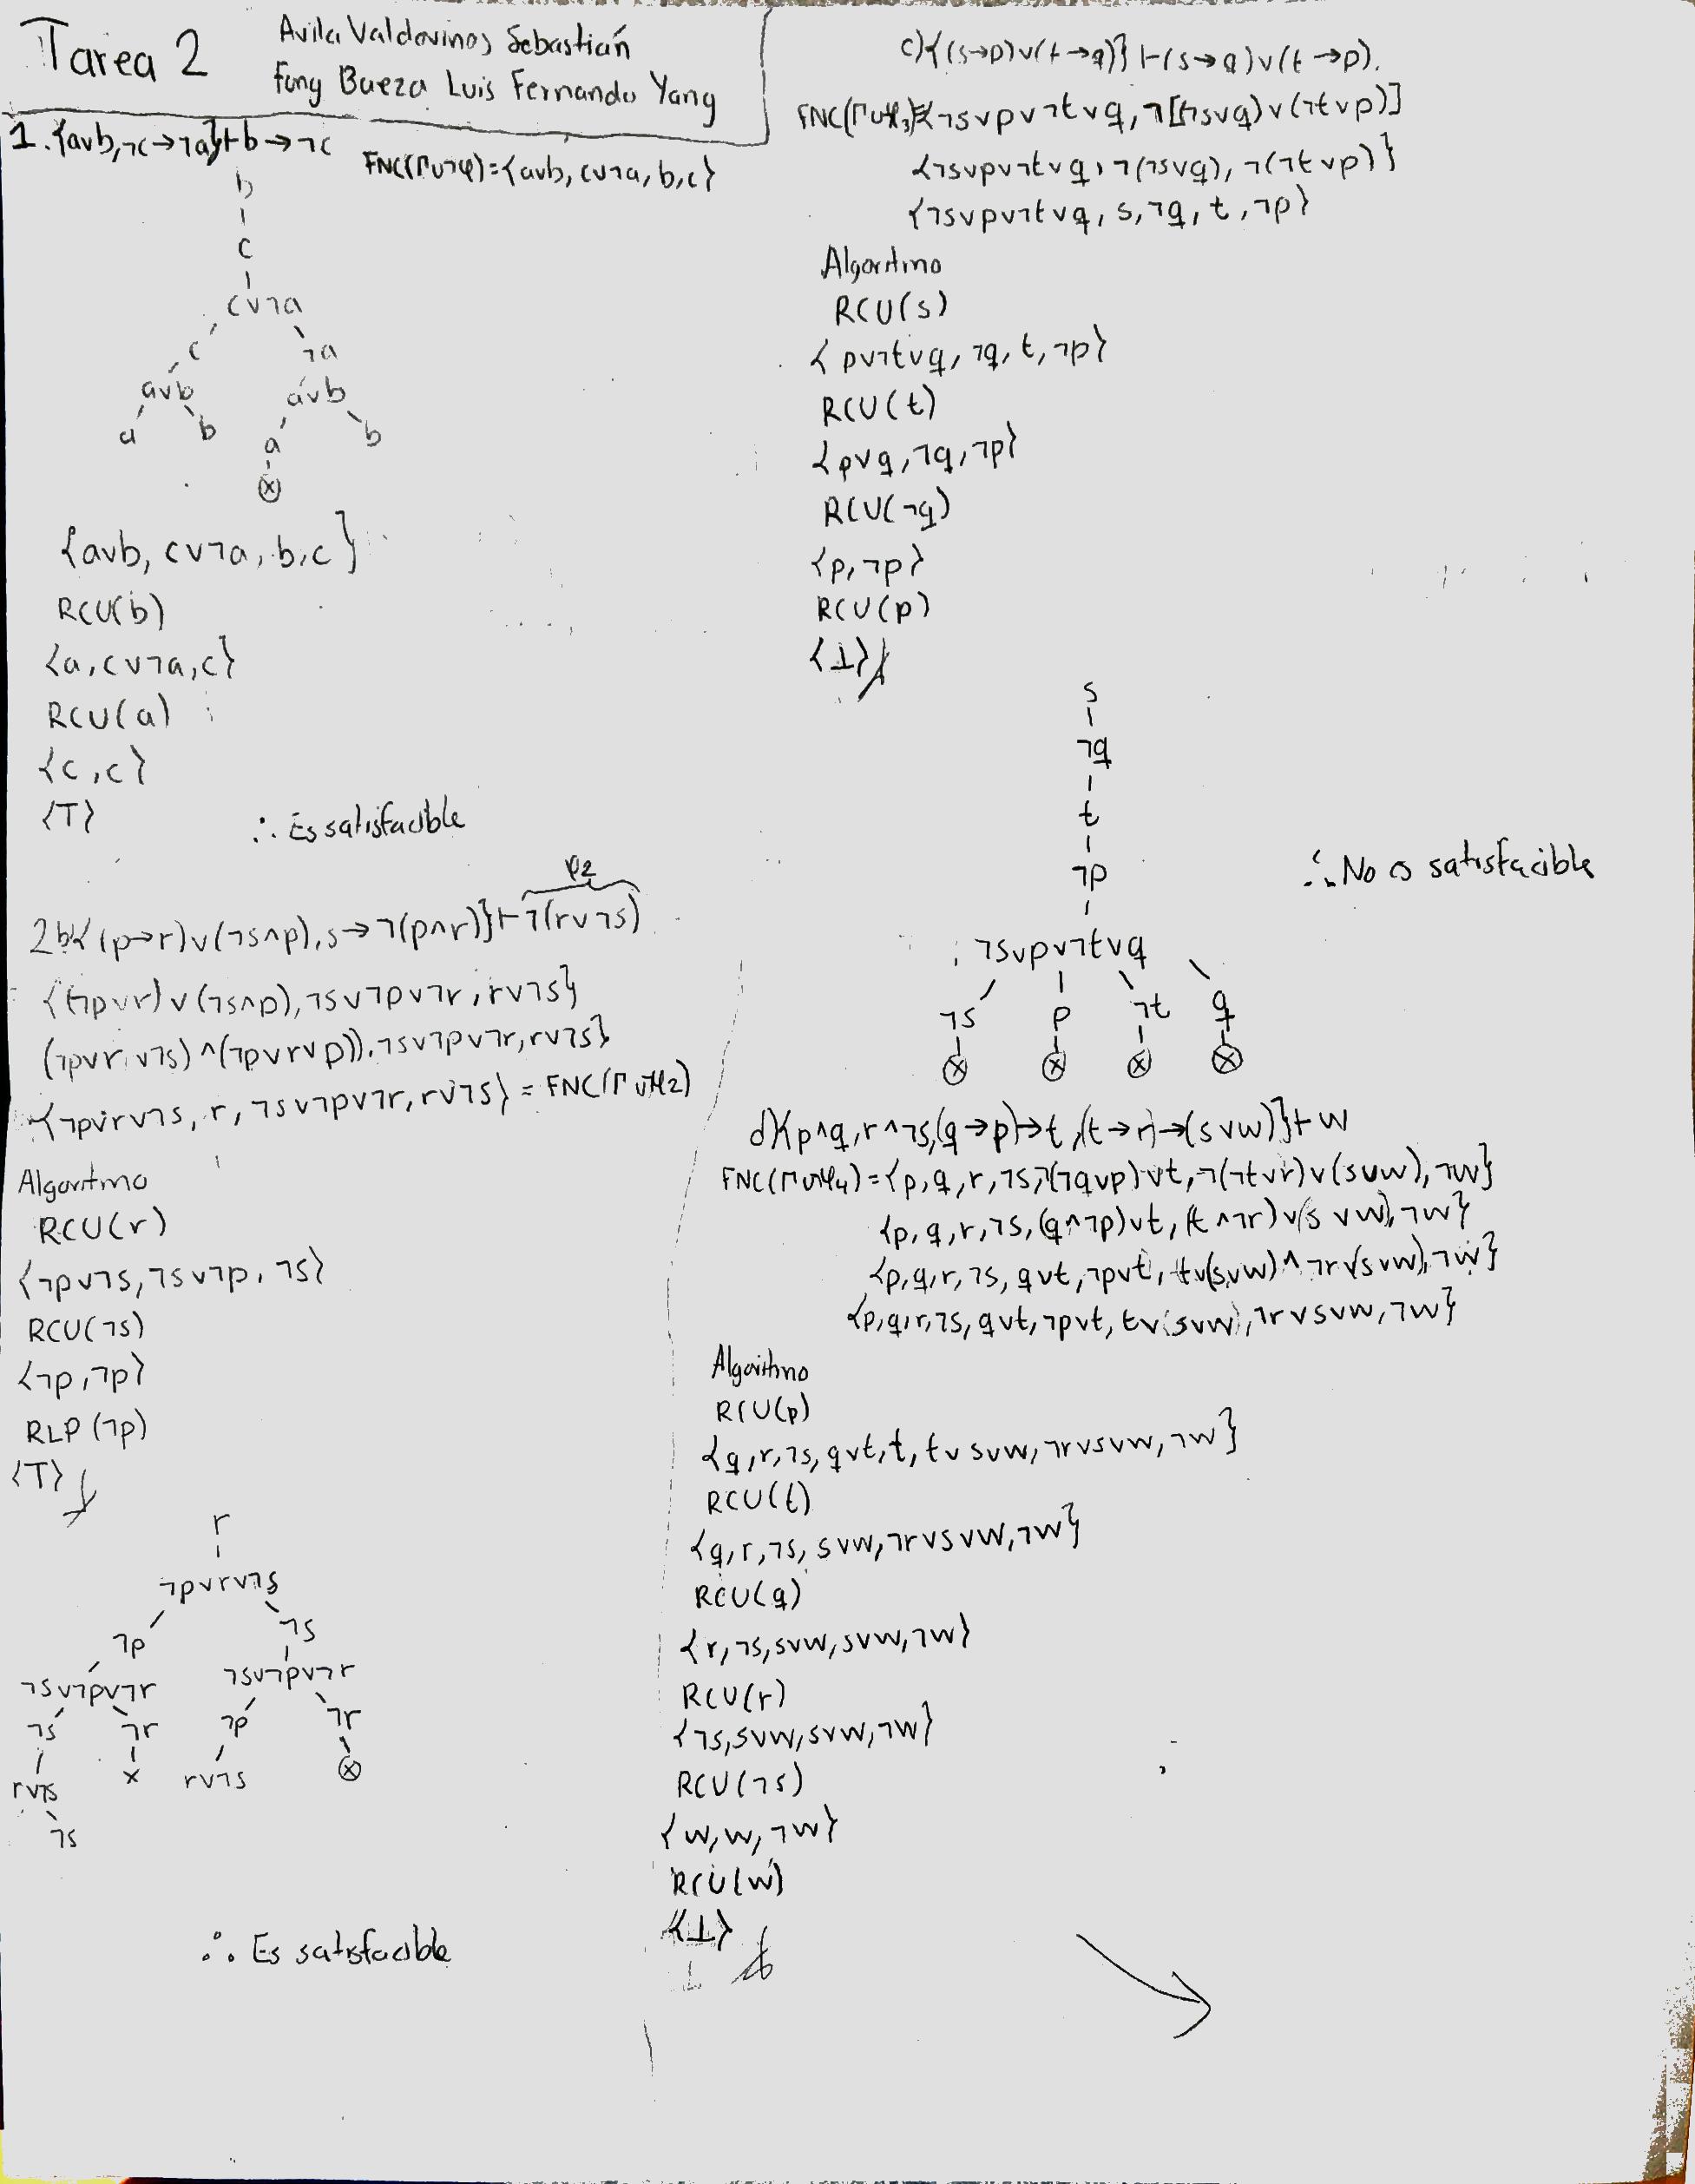 Tarea 2
Avila Valdovinos Sebastián
Fong Baeza Luis Fernando Yang
1. {a∨b, ¬c→¬a}⊢b→¬c
FNC(Γ∪¬φ)={a∨b, c∨¬a, b,c}
b
c
c∨¬a
c ¬a
a∨b a∨b
a b a b
⊗
{a∨b, c∨¬a, b,c}
RCU(b)
{a, c∨¬a, c}
RCU(a)
{c, c}
{T}
∴ Es satisfacible
φ2
2b{(p→r)∨(¬s∧p), s→¬(p∧r)}⊢¬(r∨¬s)
{(¬p∨r)∨(¬s∧p), ¬s∨¬p∨¬r, r∨¬s}
(¬p∨r∨¬s)∧(¬p∨r∨p)), ¬s∨¬p∨¬r, r∨¬s}
{¬p∨r∨¬s, r, ¬s∨¬p∨¬r, r∨¬s} = FNC(Γ∪¬φ2)
Algoritmo
RCU(r)
{¬p∨¬s, ¬s∨¬p, ¬s}
RCU(¬s)
{¬p, ¬p}
RLP(¬p)
{T}
r
¬p∨r∨¬s
¬p ¬s
¬s∨¬p∨¬r ¬s∨¬p∨¬r
¬s ¬r ¬p ¬r
r∨¬s x r∨¬s ⊗
¬s
∴ Es satisfacible
c){(s→p)∨(t→q)}⊢(s→q)∨(t→p).
FNC(Γ∪¬φ3)={¬s∨p∨¬t∨q, ¬[(¬s∨q)∨(¬t∨p)]
{¬s∨p∨¬t∨q, ¬(¬s∨q), ¬(¬t∨p)}
{¬s∨p∨¬t∨q, s, ¬q, t, ¬p}
Algoritmo
RCU(s)
{p∨¬t∨q, ¬q, t, ¬p}
RCU(t)
{p∨q, ¬q, ¬p}
RCU(¬q)
{p, ¬p}
RCU(p)
{⊥}
s
¬q
t
¬p
¬s∨p∨¬t∨q
¬s p ¬t q
⊗ ⊗ ⊗ ⊗
∴ No es satisfacible
d){p∧q, r∧¬s, (q→p)→t, (t→r)→(s∨w)}⊢w
FNC(Γ∪¬φ4)={p, q, r, ¬s, ¬(¬q∨p)∨t, ¬(¬t∨r)∨(s∨w), ¬w}
{p, q, r, ¬s, (q∧¬p)∨t, (t∧¬r)∨(s∨w), ¬w}
{p,q,r, ¬s, q∨t, ¬p∨t, t∨(s∨w)∧¬r∨(s∨w), ¬w}
{p,q,r,¬s, q∨t, ¬p∨t, t∨(s∨w), ¬r∨s∨w, ¬w}
Algoritmo
RCU(p)
{q, r, ¬s, q∨t, t, t∨s∨w, ¬r∨s∨w, ¬w}
RCU(t)
{q, r, ¬s, s∨w, ¬r∨s∨w, ¬w}
RCU(q)
{r, ¬s, s∨w, s∨w, ¬w}
RCU(r)
{¬s, s∨w, s∨w, ¬w}
RCU(¬s)
{w, w, ¬w}
RCU(w)
{⊥}